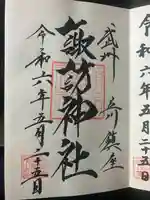 武州
鎮座
諏訪神社
令和六年五月二十五日
令和六年五月二十五